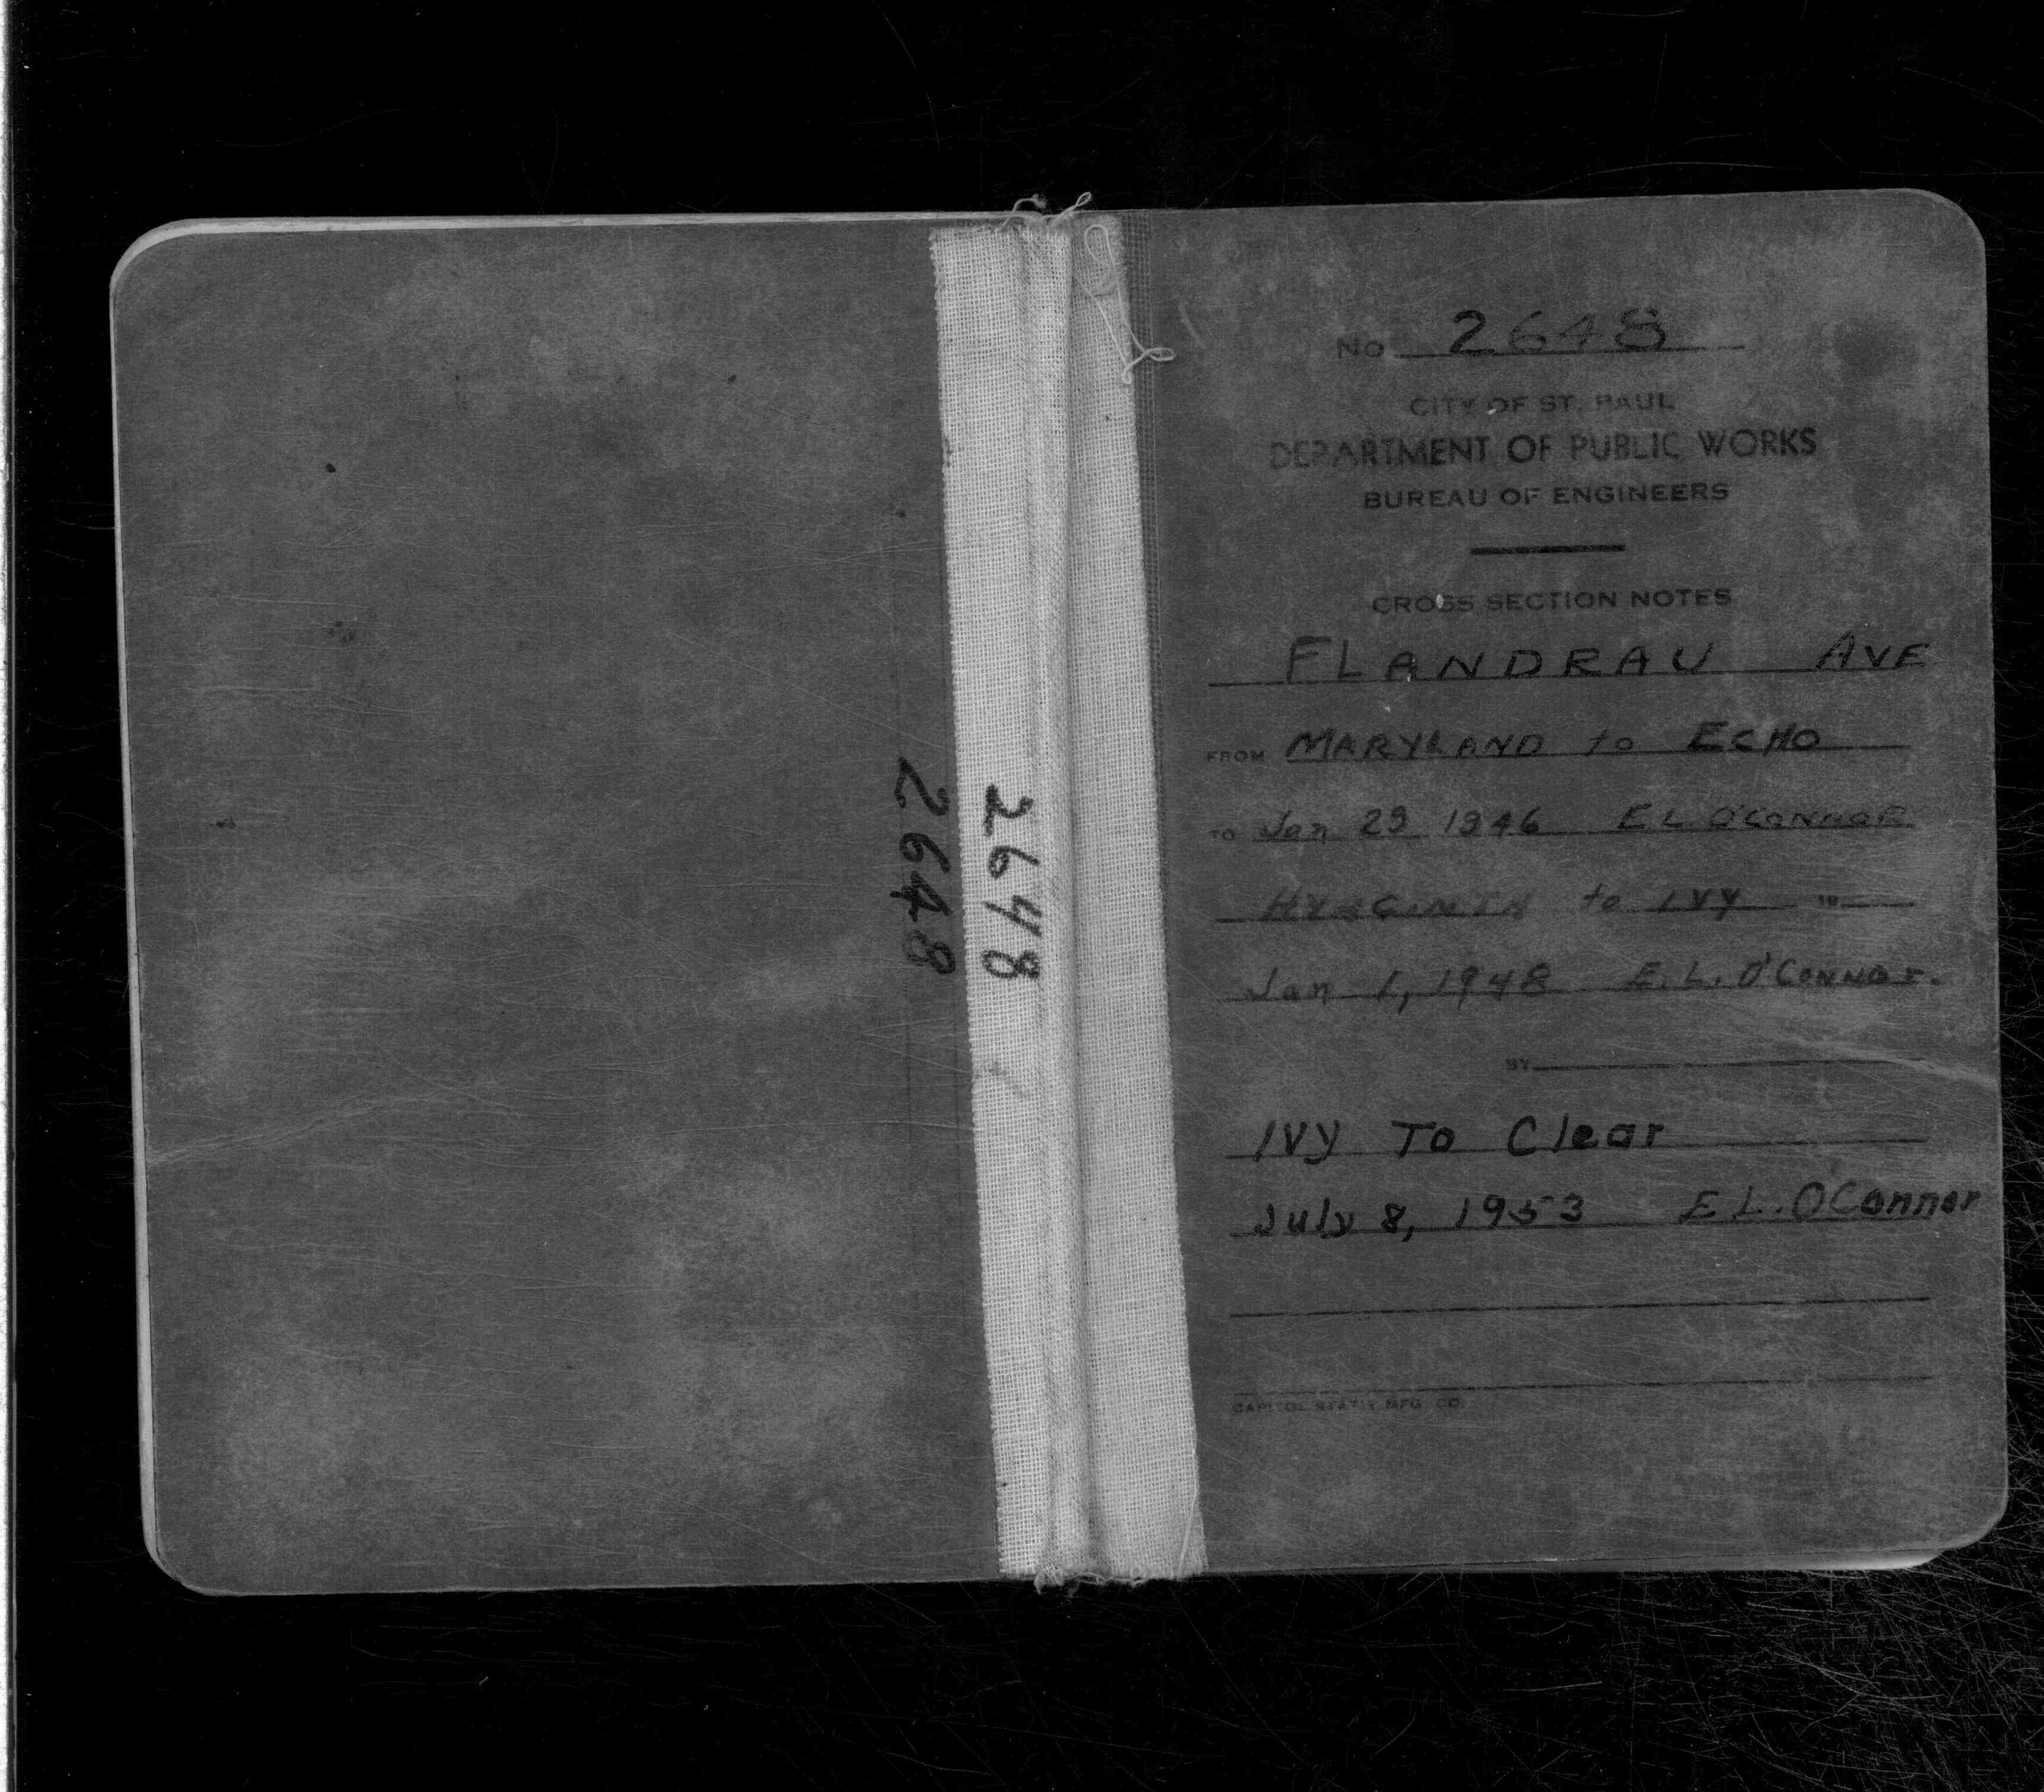 2648
2648
No. 2648
CITY OF ST. PAUL
DEPARTMENT OF PUBLIC WORKS
BUREAU OF ENGINEERS
CROSS SECTION NOTES
FLANDRAU AVE
FROM MARYLAND to ECHO
TO Jan 29 1946 E L O'CONNOR
HYACINTH to IVY 19
Jan 1, 1948 E. L. O'CONNOR.
BY
IVY To Clear
July 8, 1953 E L. O'Connor
CAPITOL STAT'Y MFG. CO.